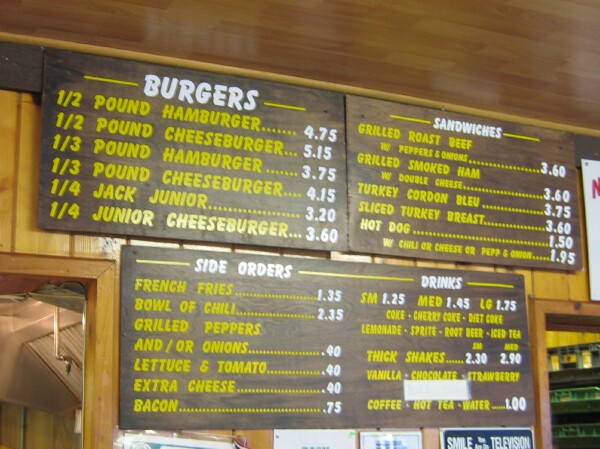 BURGERS
1/2 POUND HAMBURGER....... 4.75
1/2 POUND CHEESEBURGER... 5.15
1/3 POUND HAMBURGER ...... 3.75
1/3 POUND CHEESEBURGER.... 4.15
1/4 JACK JUNIOR............... 3.20
1/4 JUNIOR CHEESEBURGER... 3.60
SANDWICHES
GRILLED ROAST BEEF
W/ PEPPERS & ONIONS................3.60
GRILLED SMOKED HAM
W/ DOUBLE CHEESE...................3.60
TURKEY CORDON BLEU..............3.75
SLICED TURKEY BREAST............3.60
HOT DOG...........................1.50
W/ CHILI OR CHEESE OR PEPP & ONION.....1.95
SIDE ORDERS
FRENCH FRIES................1.35
BOWL OF CHILI................2.35
GRILLED PEPPERS
AND/OR ONIONS...............40
LETTUCE & TOMATO............40
EXTRA CHEESE.................40
BACON.........................75
DRINKS
SM 1.25 MED 1.45 LG 1.75
COKE - CHERRY COKE - DIET COKE
LEMONADE - SPRITE - ROOT BEER - ICED TEA
SM MED
THICK SHAKES..... 2.30 2.90
VANILLA - CHOCOLATE - STRAWBERRY
COFFEE - HOT TEA - WATER.....1.00
N
SMILE You Are On TELEVISION